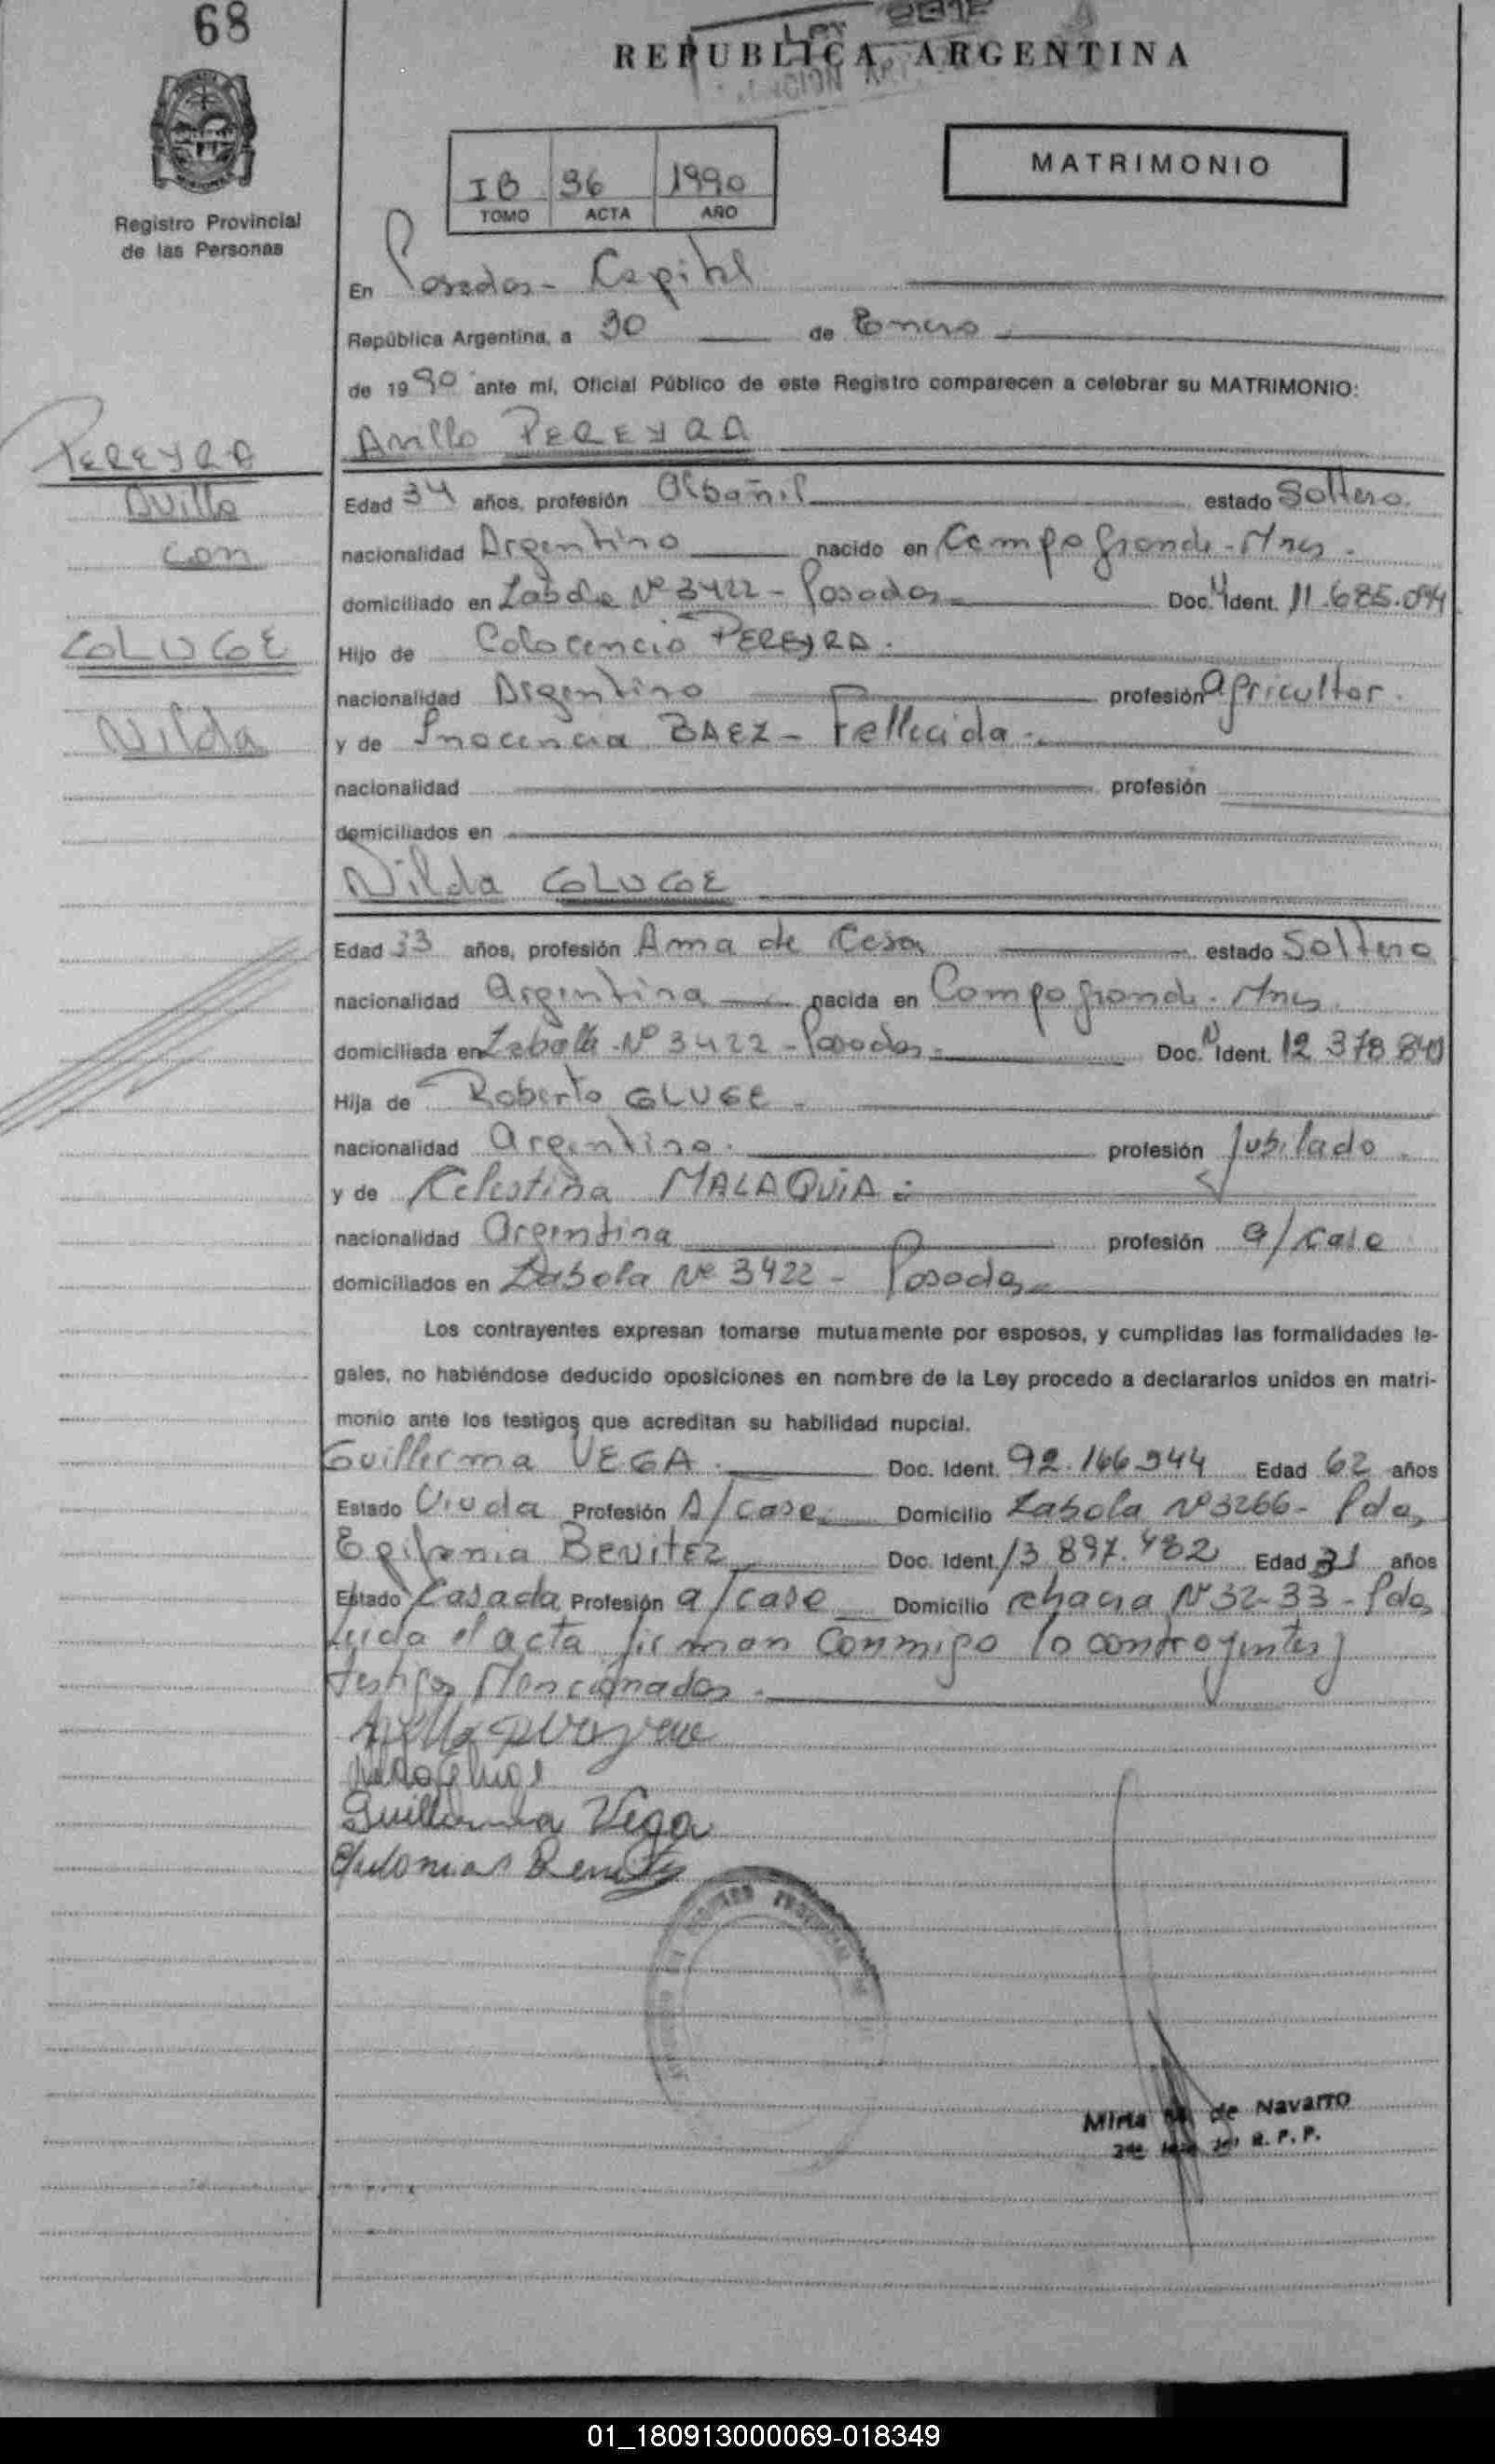 68
LEY
REPUBLICA ARGENTINA
MATRIMONIO
IB 96 1990
TOMO ACTA AÑO
Registro Provincial
de las Personas
En Posadas - Capital
República Argentina, a 30 de Enero
de 1990 ante mí, Oficial Público de este Registro comparecen a celebrar su MATRIMONIO:
PEREYRA
Avillo
con
GLUGE
Nilda
Avillo PEREYRA
Edad 34 años, profesión Albañil estado Soltero.
nacionalidad Argentino nacido en Campo Grande - Mnes.
domiciliado en Nº 3422 - Posadas Doc. Ident. 11.685.094
Hijo de PEREYRA.
nacionalidad Argentino profesión Agricultor.
y de Inocencia BAEZ - Fellecida.
nacionalidad profesión
domiciliados en
Nilda GLUGE
Edad 33 años, profesión Ama de Casa estado Soltera
nacionalidad Argentina nacida en Campo Grande. Mnes.
domiciliada en Nº 3422 - Posadas. Doc. Ident. 12 378 840
Hija de Roberto GLUGE -
nacionalidad Argentino. profesión Jubilado.
y de Celestina MALAQUIA.
nacionalidad Argentina profesión a/casa
domiciliados en Zabala Nº 3422 - Posadas
Los contrayentes expresan tomarse mutuamente por esposos, y cumplidas las formalidades le-
gales, no habiéndose deducido oposiciones en nombre de la Ley procedo a declararlos unidos en matri-
monio ante los testigos que acreditan su habilidad nupcial.
Guillerma VEGA. Doc. Ident. 92.166.944 Edad 62 años
Estado Viuda Profesión A/casa Domicilio Zabala Nº 3266 - Pdas
Epifania Benitez Doc. Ident. 13 897.482 Edad 31 años
Estado Casada Profesión a/casa Domicilio chacra Nº 32-33 - Pdas
Leida el acta firman conmigo lo contrayentes y
testigos Mencionados.
Guillerma Vega
Benitez
Mirta de Navarro
R. P. P.
01_180913000069-018349